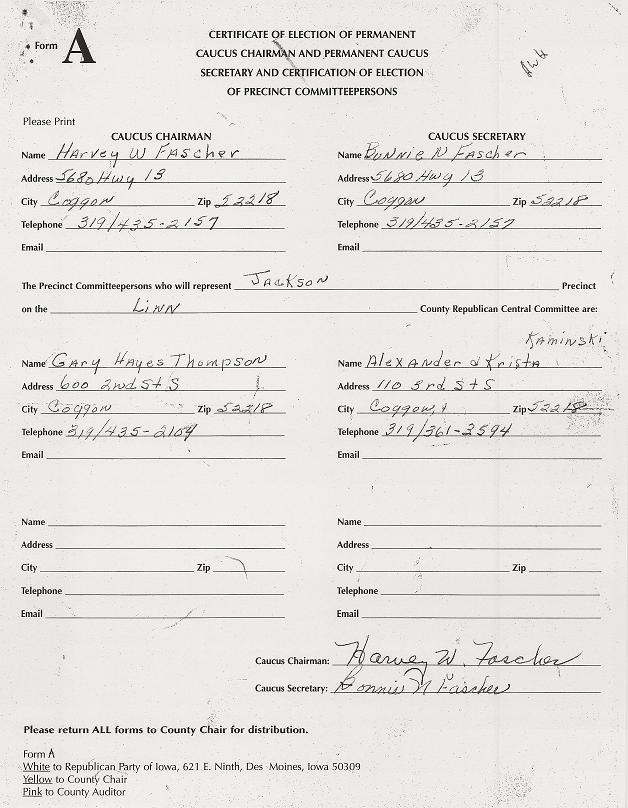 Form A
CERTIFICATE OF ELECTION OF PERMANENT
CAUCUS CHAIRMAN AND PERMANENT CAUCUS
SECRETARY AND CERTIFICATION OF ELECTION
OF PRECINCT COMMITTEEPERSONS
Please Print
CAUCUS CHAIRMAN CAUCUS SECRETARY
Name Harvey W Fascher Name Bonnie N Fascher
Address 5680 Hwy 13 Address 5680 Hwy 13
City Coggon Zip 52218 City Coggon Zip 52218
Telephone 319/435-2157 Telephone 319/435-2157
Email Email
The Precinct Committeepersons who will represent Jackson Precinct
on the Linn County Republican Central Committee are:
Kaminski
Name Gary Hayes Thompson Name Alexander & Krista
Address 600 2nd St S Address 110 3rd St S
City Coggon Zip 52218 City Coggon Zip 52218
Telephone 319/435-2104 Telephone 319/361-3594
Email Email
Name Name
Address Address
City Zip City Zip
Telephone Telephone
Email Email
Caucus Chairman: Harvey W. Fascher
Caucus Secretary: Bonnie N Fascher
Please return ALL forms to County Chair for distribution.
Form A
White to Republican Party of Iowa, 621 E. Ninth, Des Moines, Iowa 50309
Yellow to County Chair
Pink to County Auditor